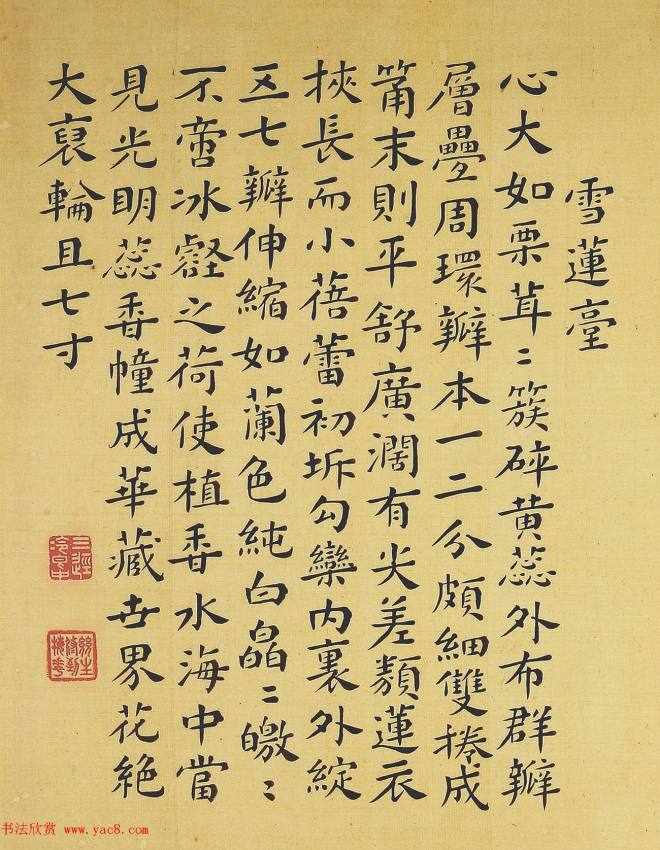 雪蓮臺
心大如栗茸〻簇碎黄蕊外布群瓣
層疊周環瓣本一二分頗細雙捲成
筩末則平舒廣濶有尖差類蓮衣
挾長而小蓓蕾初坼勾欒内裏外綻
五七瓣伸縮如蘭色純白皛〻皦〻
不啻冰壑之荷使植香水海中當
見光明蕊香幢成華藏世界花絶
大裒輪且七寸
书法欣赏 www.yac8.com